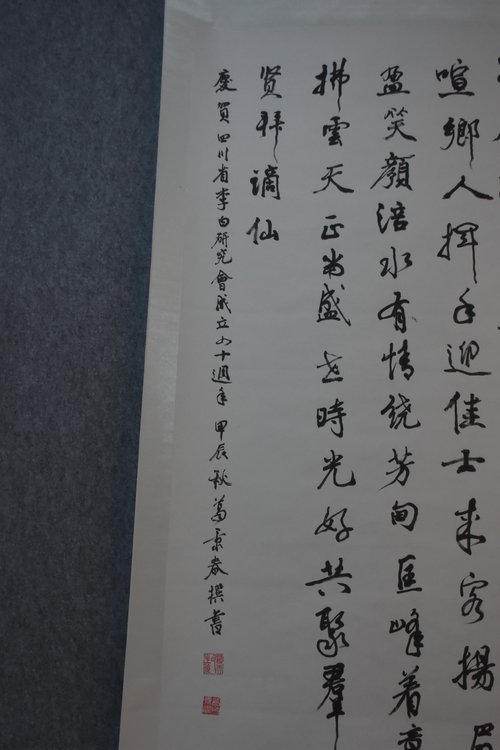 喧鄉人揮手迎佳士來客揚
盈笑顏涪水有情绕芳甸匡峰着意
拂雲天正当盛世時光好共聚羣
贤拜谪仙
慶賀四川省李白研究會成立四十週年甲辰秋葛景春撰書